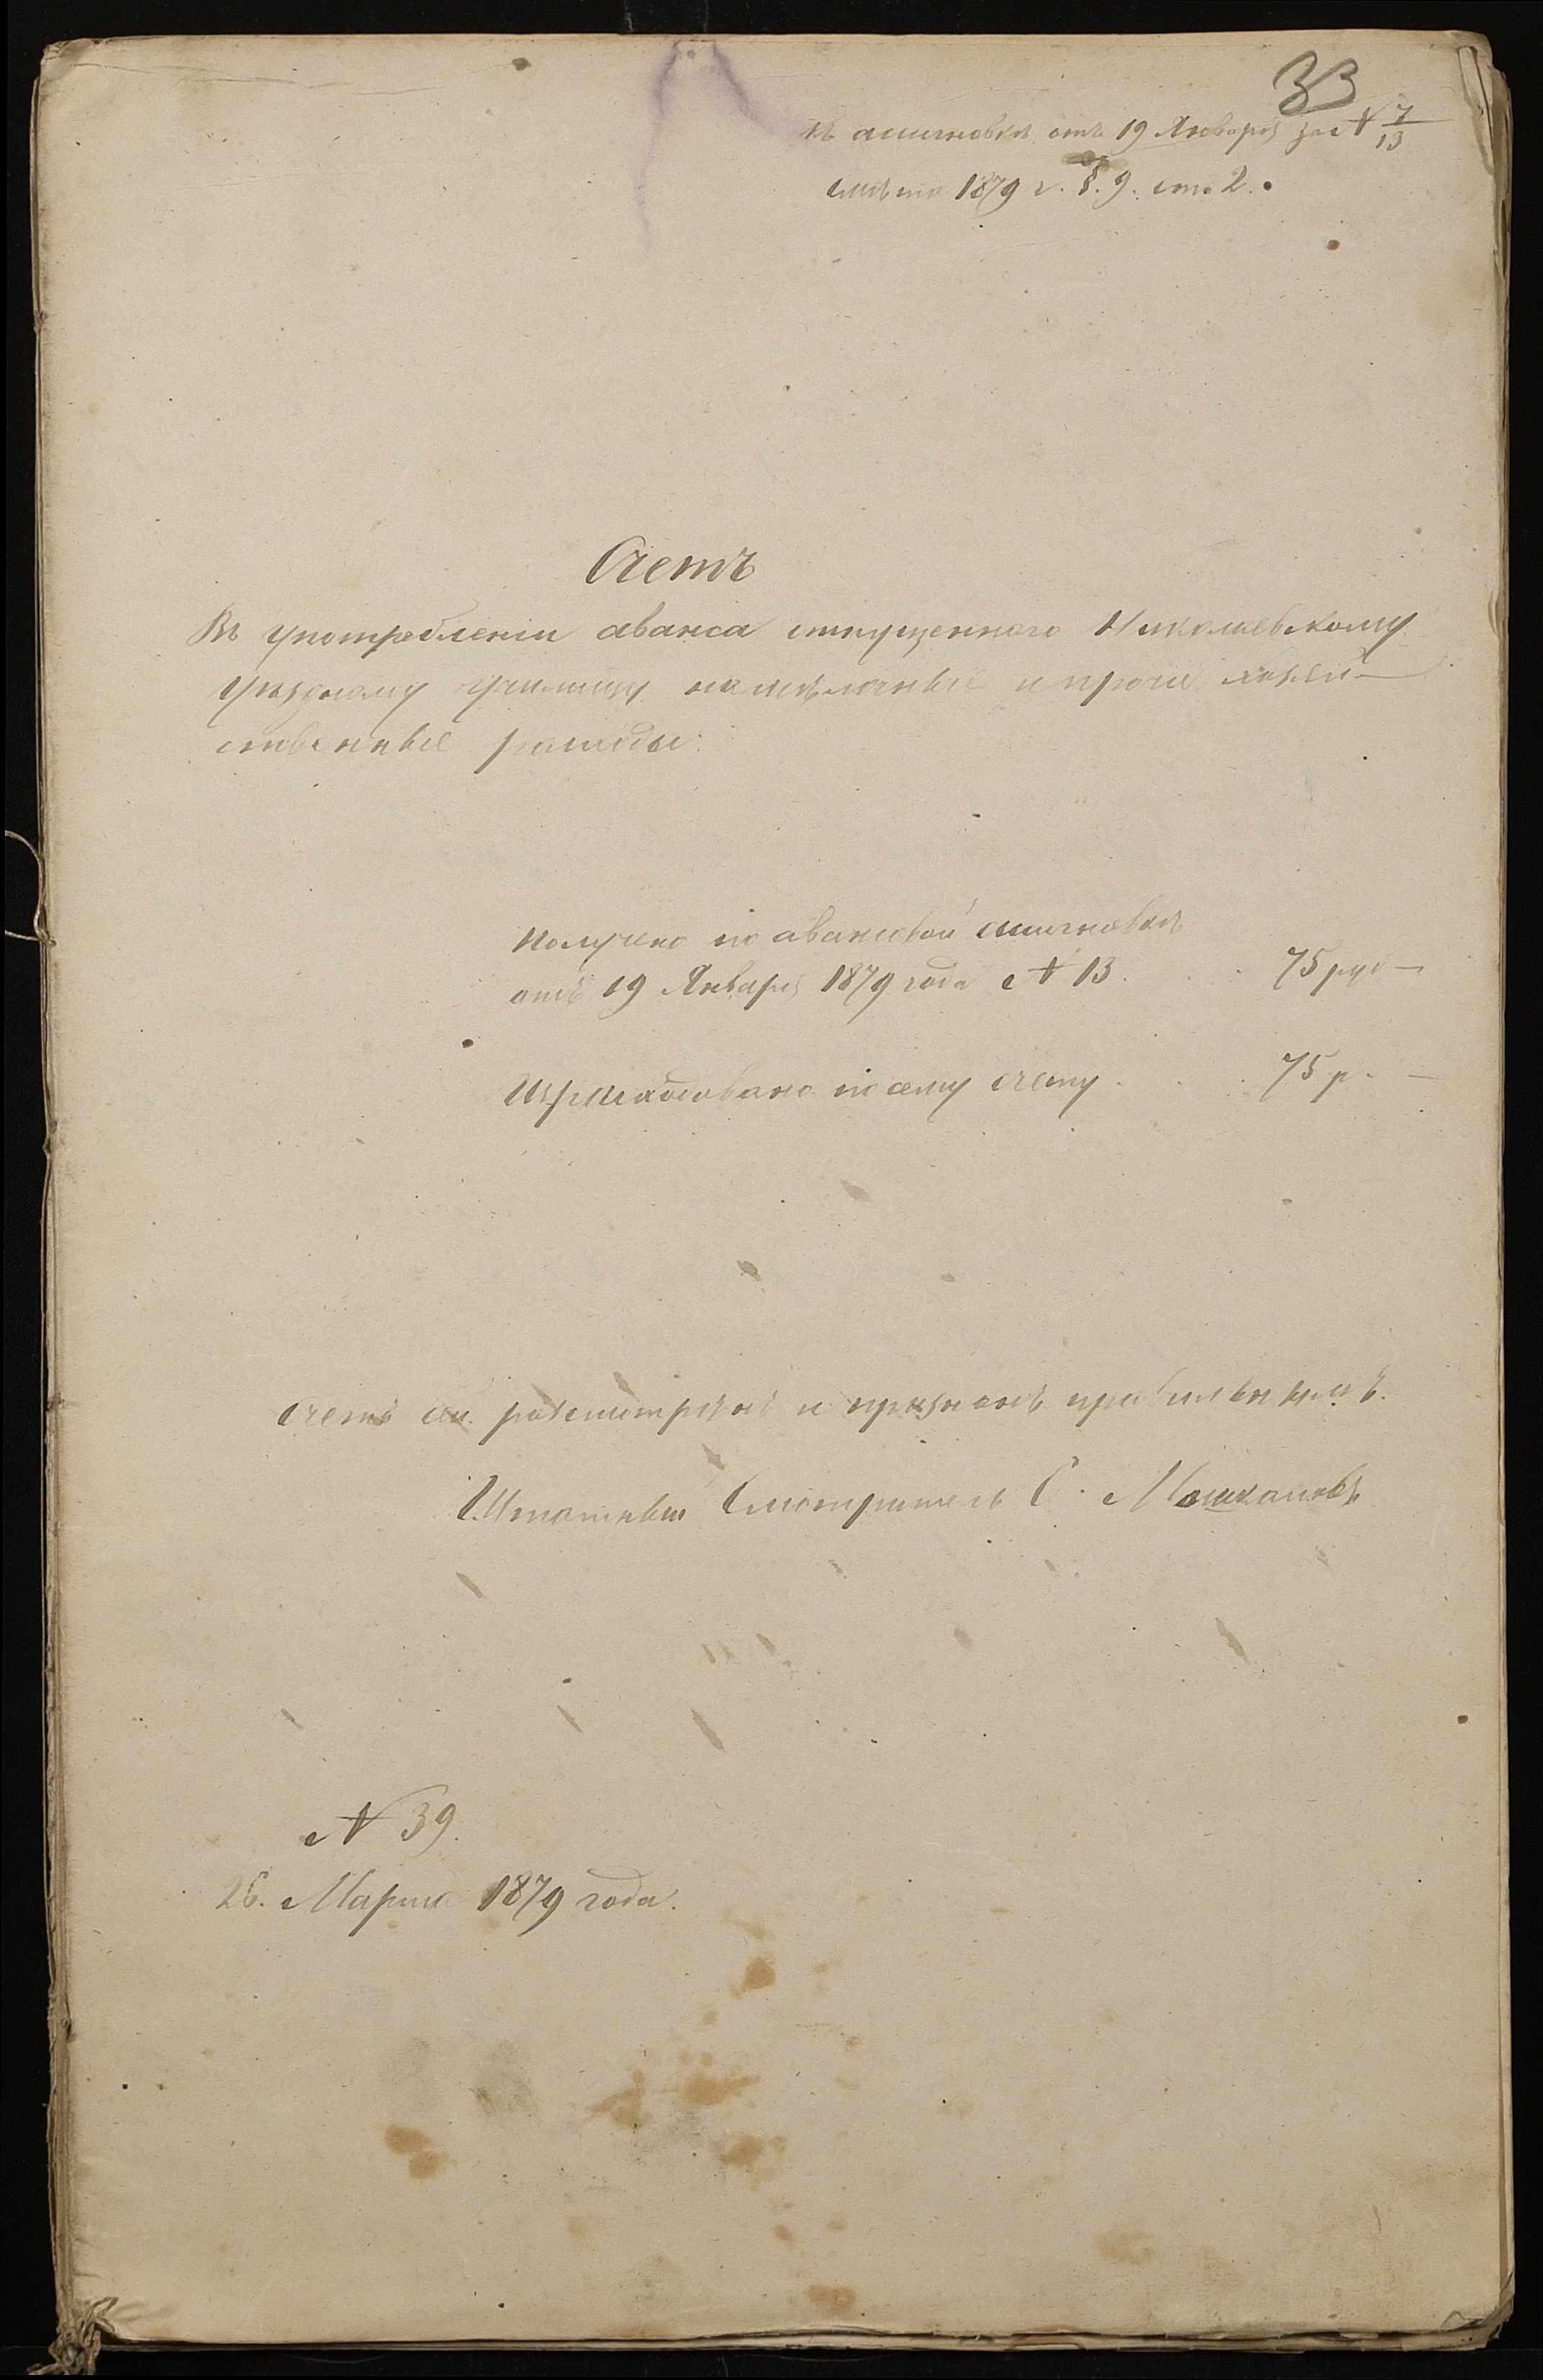 33
Къ ассигновкѣ отъ 19 Января за № 7/13
Смѣта 1879 г. §. 9. ст. 2.
Счетъ
Въ употребленіи аванса отпущеннаго Николаевскому
уѣздному училищу на мѣлочные и прочіе хозяй-
ственные расходы.
Получено по авансовой ассигновкѣ
отъ 19 Января 1879 года № 13. 75 руб —
Израсходовано по сему счету 75 р. —
Счетъ сей разсмотрѣнъ и признанъ правильнымъ.
Штатный Смотритель С.
№ 39.
26. Марта 1879 года.